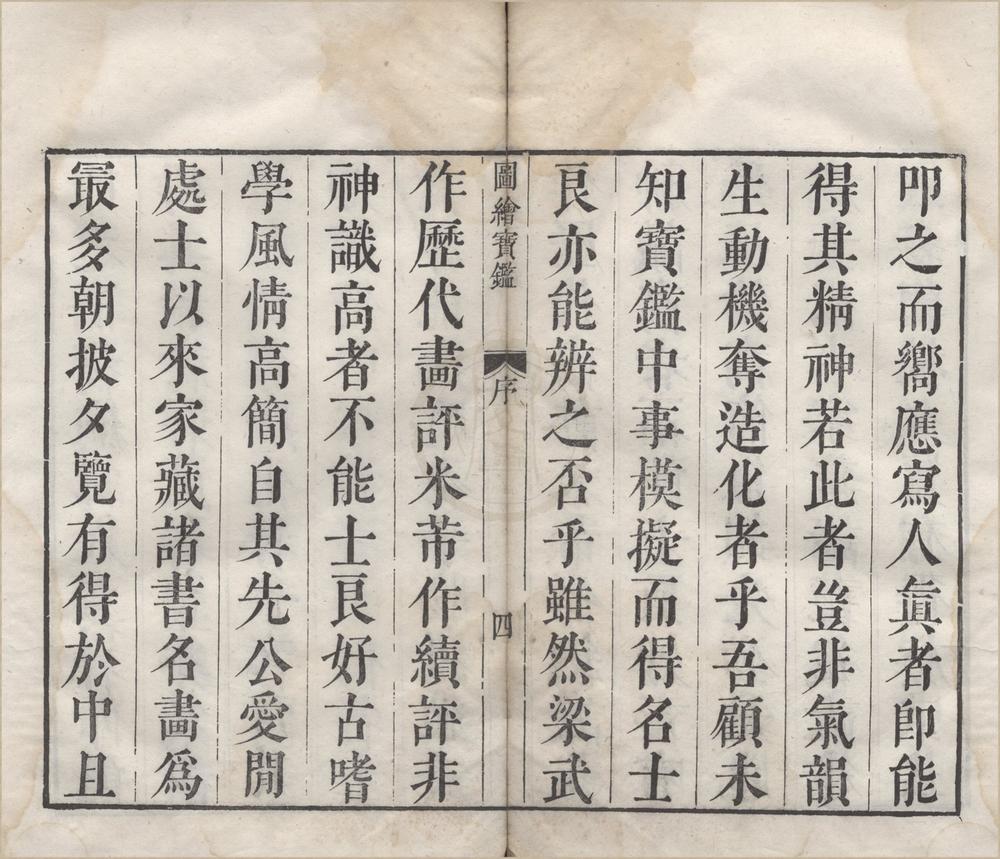 叩之而嚮應寫人眞者卽能
得其精神若此者豈非氣韻
生動機奪造化者乎吾顧未
知寶鑑中事模擬而得名士
良亦能辨之否乎雖然梁武
圖繪寶鑑 序 四
作歷代畫評米芾作續評非
神識高者不能士良好古嗜
學風情高簡自其先公愛閒
處士以來家藏諸書名畫爲
最多朝披夕覽有得於中且